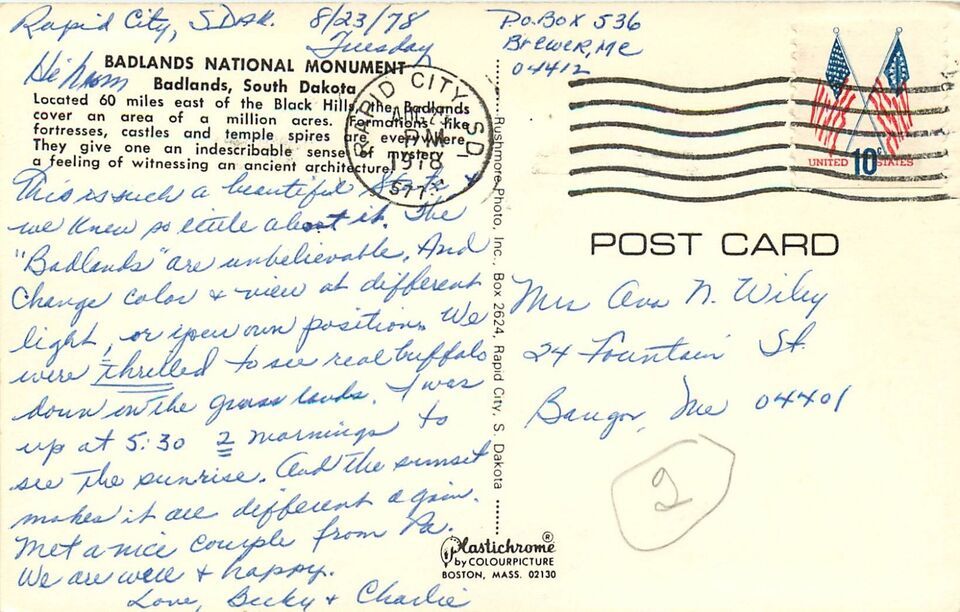 Rapid City, S Dak. 8/23/78
Tuesday
P.O. BOX 536
BREWER, ME
04412
UNITED 10c STATES
RAPID CITY, S.D.
PM
1978
577
BADLANDS NATIONAL MONUMENT
Badlands, South Dakota
Located 60 miles east of the Black Hills, the Badlands
cover an area of a million acres. Formations like
fortresses, castles and temple spires are everywhere.
They give one an indescribable sense of mystery
a feeling of witnessing an ancient architecture!
Hi
This is such a beautiful State &
we knew so little about it. The
"Badlands" are unbelievable. And
Change color & view at different
light, or your own position. We
were thrilled to see real buffalo
down on the grass lands. I was
up at 5:30 2 mornings to
see the sunrise. And the sunset
makes it all different again.
Met a nice couple from Pa.
We are well & happy.
Love, Becky & Charlie
Rushmore Photo, Inc., Box 2624, Rapid City, S. Dakota
POST CARD
Mrs Ava N. Wiley
24 Fountain St.
Bangor, Me 04401
2
Plastichrome®
by COLOURPICTURE
BOSTON, MASS. 02130